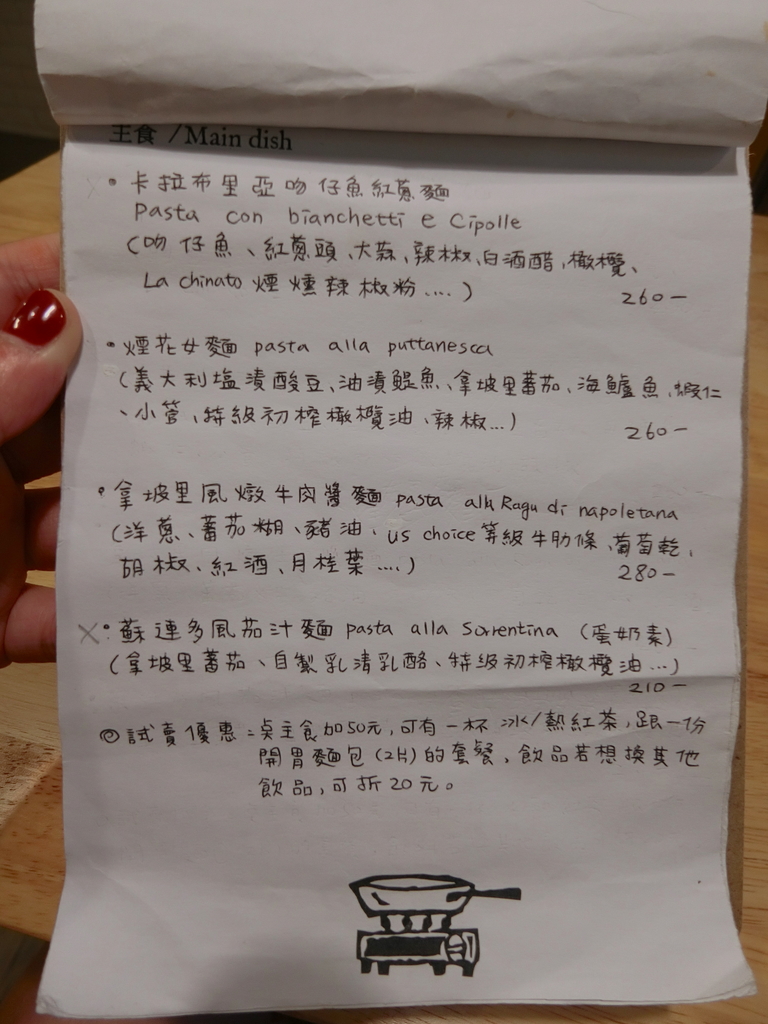 主食 /Main dish
• 卡拉布里亞吻仔魚紅蔥麵
Pasta con bianchetti e Cipolle
(吻仔魚、紅蔥頭、大蒜、辣椒、白酒醋、橄欖、
La chinato 煙燻辣椒粉....)
260-
• 煙花女麵 pasta alla puttanesca
(義大利塩漬酸豆、油漬鯷魚、拿坡里蕃茄、海鱸魚、蝦仁
、小管、特級初榨橄欖油、辣椒...)
260-
• 拿坡里風燉牛肉醬麵 pasta alla Ragu di napoletana
(洋蔥、蕃茄糊、豬油、us choice等級牛肋條、葡萄乾、
胡椒、紅酒、月桂葉....)
280-
X • 蘇連多風茄汁麵 pasta alla Sorrentina (蛋奶素)
(拿坡里蕃茄、自製乳清乳酪、特級初榨橄欖油...)
210-
◎ 試賣優惠：點主食加50元，可有一杯冰/熱紅茶，跟一份
開胃麵包(2片)的套餐，飲品若想換其他
飲品，可折20元。